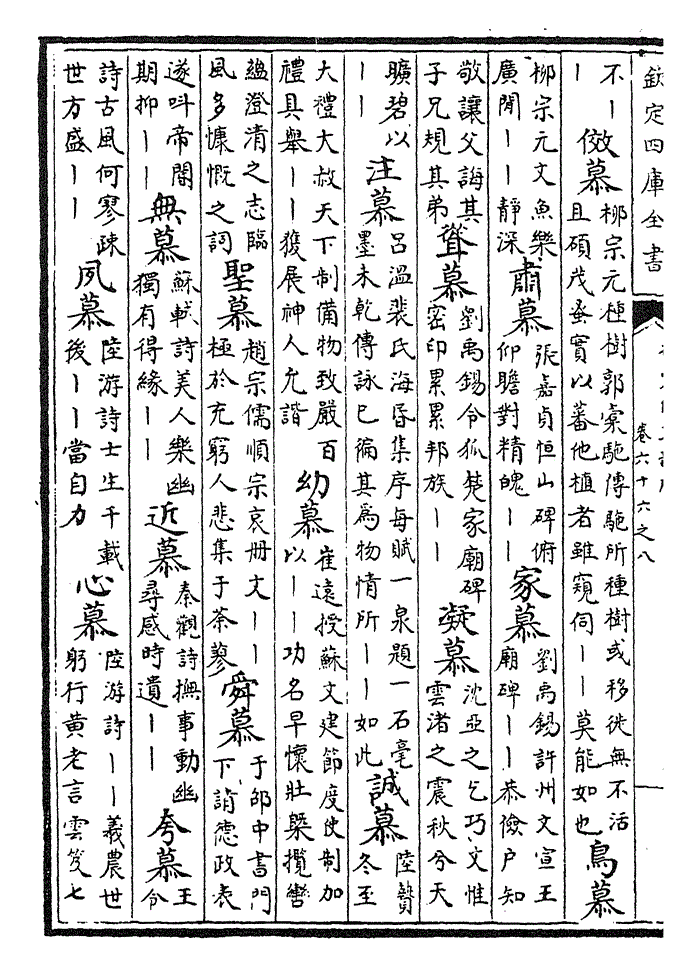 欽定四庫全書
卷六十六之八
不丨
丨
傚慕
柳宗元種樹郭橐駞傳駞所種樹或移徙無不活
且碩茂蚤實以蕃他植者雖窺伺丨丨莫能如也
鳥慕
柳宗元文魚樂
廣閒丨丨靜深
肅慕
張嘉貞恒山碑俯
仰瞻對精魄丨丨
家慕
劉禹錫許州文宣王
廟碑丨丨恭儉户知
敬讓父誨其
子兄規其弟
聳慕
劉禹錫令狐楚家廟碑
密印累累邦族丨丨
凝慕
沈亞之乞巧文惟
雲渚之震秋兮天
曠碧以
丨丨
注慕
吕溫裴氏海昏集序每賦一泉題一石毫
墨未乾傳詠已徧其為物情所丨丨如此
誠慕
陸贄
冬至
大禮大赦天下制備物致嚴百
禮具舉丨丨獲展神人允諧
幼慕
崔遠授蘇文建節度使制加
以丨丨功名早懷壯槩攬轡
蘊澄清之志臨
風多慷慨之詞
聖慕
趙宗儒順宗哀册文丨丨
極於充窮人悲集于荼蓼
舜慕
于邵中書門
下請德政表
遂叫帝閽
期抑丨丨
無慕
蘇軾詩美人樂幽
獨有得緣丨丨
近慕
秦觀詩撫事動幽
尋感時遺丨丨
夸慕
王
令
詩古風何寥疎
世方盛丨丨
夙慕
陸游詩士生千載
後丨丨當自力
心慕
陸游詩丨丨羲農世
躬行黄老言雲笈七